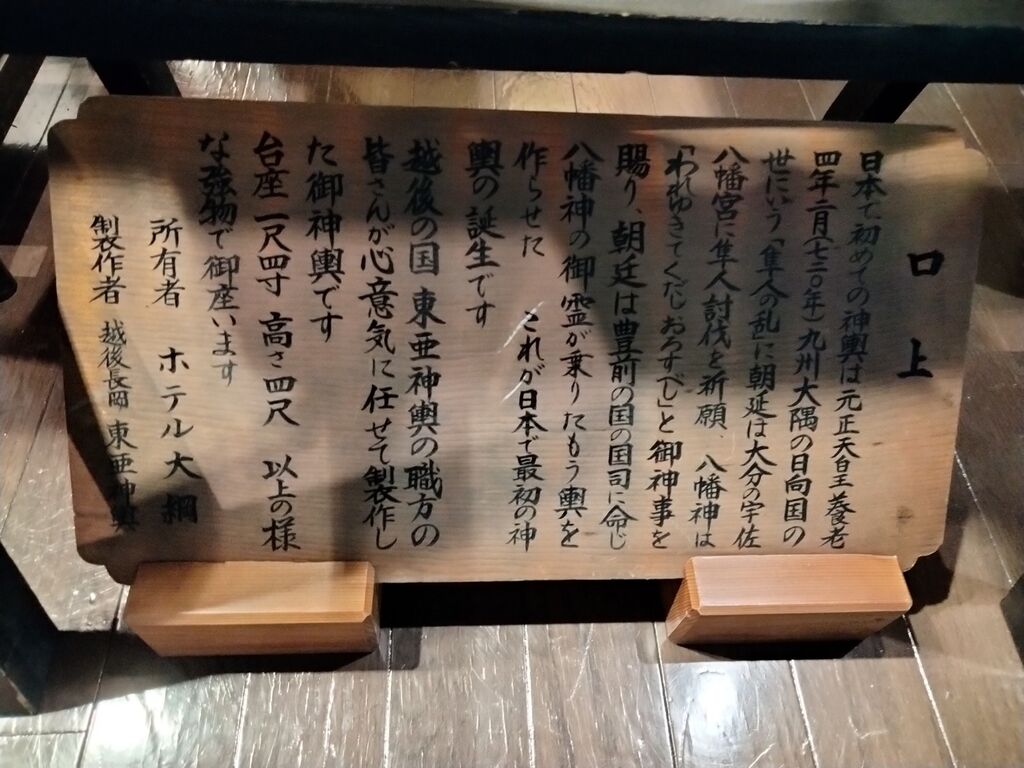 口上
日本で初めての神輿は元正天皇養老
四年二月(七二〇年)九州大隅の日向国の
世にいう「隼人の乱」に朝延は大分の宇佐
八幡宮に隼人討伐を祈願、八幡神は
「われゆきてくだしおろすべし」と御神事を
賜り、朝廷は豊前の国の国司に命じ
八幡神の御霊が乗りたもう輿を
作らせた これが日本で最初の神
輿の誕生です
越後の国 東亜神輿の職方の
皆さんが心意気に任せて製作し
た御神輿です
台座一尺四寸 高さ四尺 以上の様
な強物で御座います
所有者 ホテル大綱
製作者 越後長岡 東亜神輿